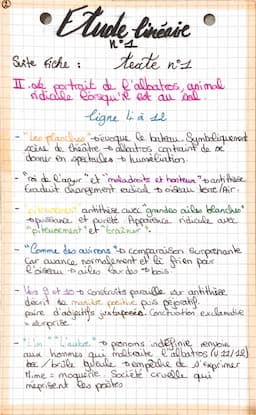 ②
Etude linéaire
n°1
Suite fiche : texte n°1
II. Le portrait de l'albatros, animal
ridicule lorsqu'il est au sol.
ligne 4 à 12
- "Les planches" → évoque le bateau. Symboliquement
scène de théâtre → albatros contraint de se
donner en spectacle → humiliation.
- "roi de l'azur" et "maladroits et honteux" → antithèse
traduit changement radical → oiseau terre/Air.
- "piteusement" antithèse avec "grandes ailes blanches"
→ puissance et pureté. Apparence ridicule avec
"piteusement" et "traîner".
- "Comme des avirons" → comparaison surprenante
car avance normalement et là frein par
l'oiseau → ailes lourdes → bois
- Vers 9 et 10 → construits parallèle sur antithèse
décrit de manière positive puis péjoratif.
paire d'adjectifs juxtaposés. Construction exclamative
= surprise.
- "L'un" "L'autre" → pronoms indéfinis renvoie
aux hommes qui maltraite l'albatros (v.11/12)
bec / brûle gueule → empêche de s'exprimer
Mime = moquerie. Société cruelle qui
méprisent les poètes